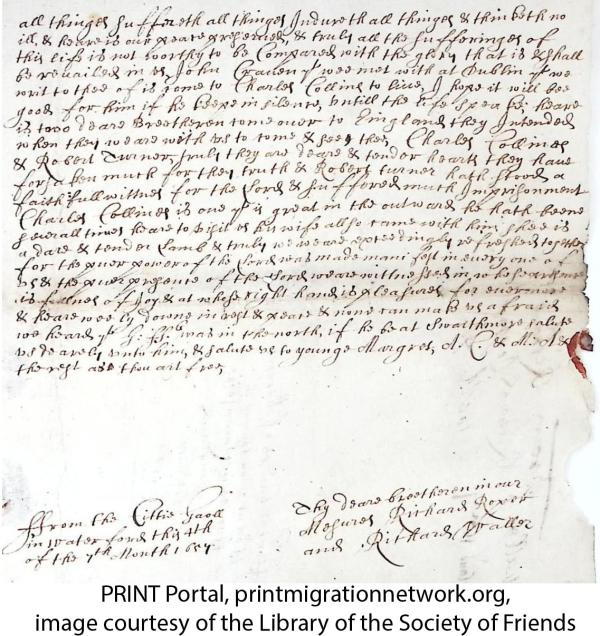 all thinges suffereth all thinges Indureth all thinges & thinketh no
ill, & heare is our peace preserued, & truly all the sufferinges of
this life is not worthy to be Compared with the glory that is & shall
be reuailed in vs John Crauen yt wee met with at Dublin yt we
writ to thee of is gone to Charles Collins to liue, I hope it will bee
good for him if he keepe in silence, vntill the life speake; heare
is two deare Breetheren come ouer to England they Intended
when they weare with vs to come & see thee, Charles Collines
& Robert Turner, truly they are deare & tender hearts they haue
forsaken much for they truth & Robert turner hath stood a
faithfull wittnes for the Lord & suffered much Imprisonment
Charles Collines is one yt is great in the outward he hath beene
seuerall times heare to visit vs his wife allso came with him shee is
a dare & tender Lamb & truly we weare exceedingly refreshed together
for the puer power of the Lord was made manifest in euery one of
vs & the puer presence of the Lord weare wittnessed in whose
is fullnes of Joy & at whose right hand is pleasures for euermore
& heare wee ly downe in rest & peace & none can make vs afraid
we heard yt G: ff: was in the north, if he be at Swaithmore salute
vs dearely vnto him, & salute vs to younge Margret, A. C & M: A &
the rest as thou art free,
Thy deare breetheren in our
Mesures Richard
and Richard Waller
ffrom the Cittie Gaoll
in Waterford this 4th
of the 7th Month 1657
PRINT Portal, printmigrationnetwork.org,
image courtesy of the Library of the Society of Friends